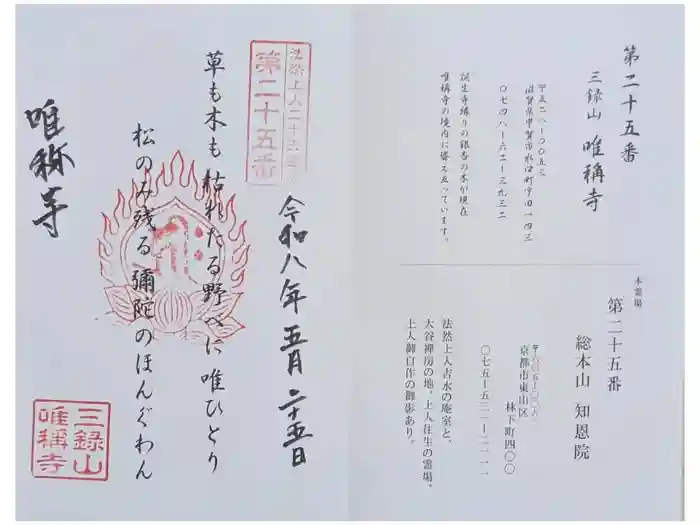 第二十五番
三録山 唯稱寺
滋賀県甲賀市水口町宇田一四三
〇七四八ー六二ー三九三二
誕生寺縁りの銀杏の木が現在
唯稱寺の境内に聳え立っています。
本霊場
第二十五番
総本山 知恩院
京都市東山区
林下町四〇〇
〇七五ー五三一ー二一一一
法然上人吉水の庵室と、
大谷禅房の地。上人往生の霊場。
上人御自作の御影あり。
法然上人二十五
第二十五番
令和八年五月二十五日
草も木も枯れたる野べに唯ひとり
松のみ残る彌陀のほんぐわん
唯称寺
三録山
唯稱寺